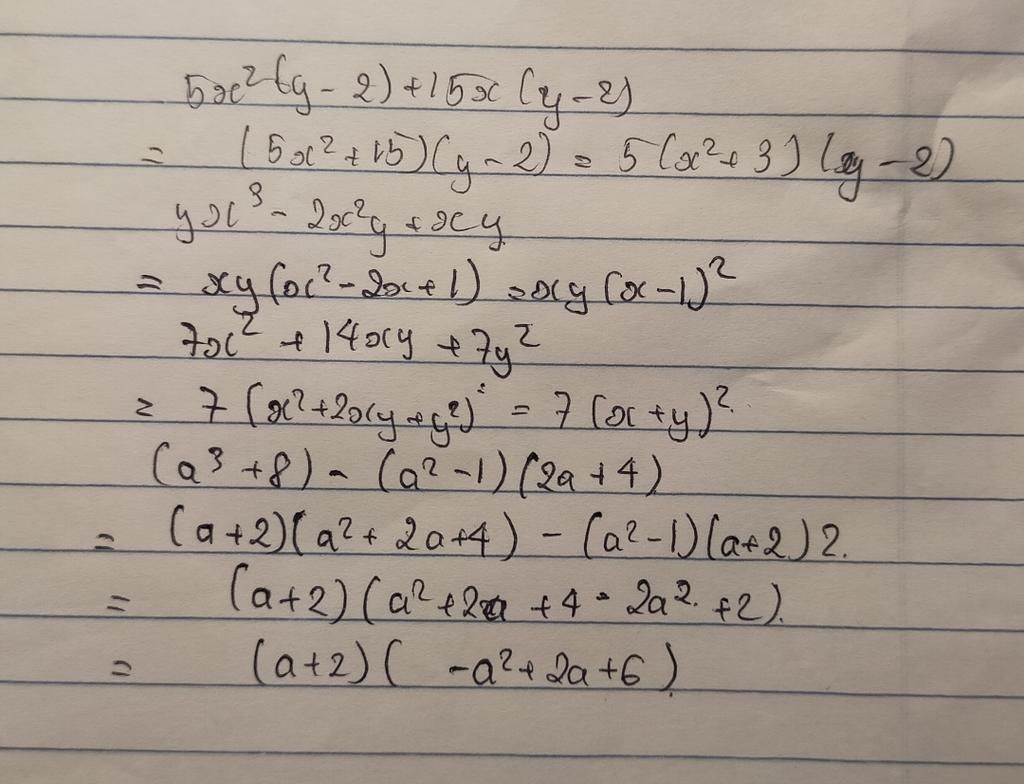 5x²(y - 2) + 15x (y - 2)
= (5x² + 15)(y - 2) = 5(x² + 3)(y - 2)
yx³ - 2x²y + xy
= xy(x² - 2x + 1) = xy(x - 1)²
7x² + 14xy + 7y²
= 7(x² + 2xy + y²) = 7(x + y)²
(a³ + 8) - (a² - 1)(2a + 4)
= (a + 2)(a² + 2a + 4) - (a² - 1)(a + 2)2.
= (a + 2)(a² + 2a + 4 - 2a² + 2).
= (a + 2)( -a² + 2a + 6)